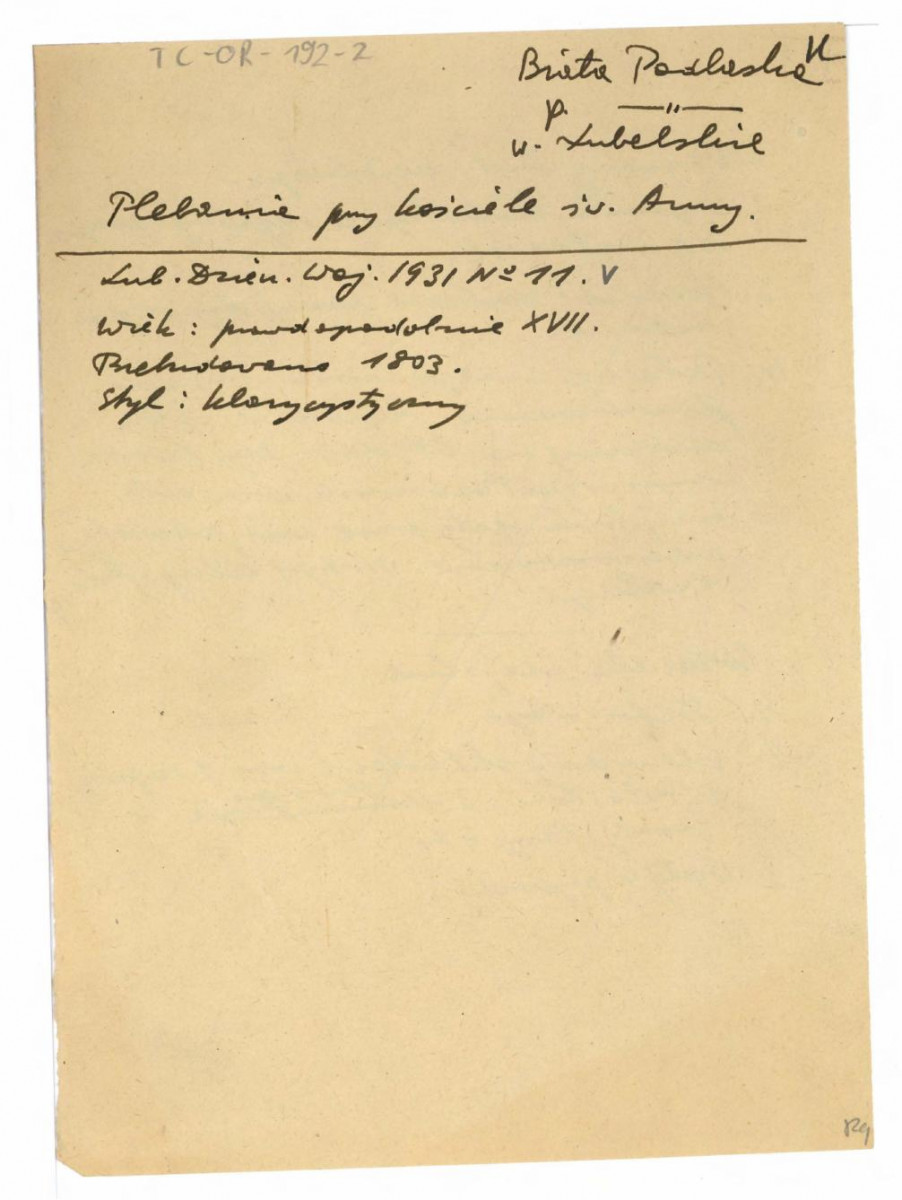 TC-OR-192-2
Biała Podlaska VL
p. —"—
w. Lubelskie
Plebania przy kościele św. Anny.
Lub. Dzien. Woj. 1931 Nº 11. V
Wiek: prawdopodobnie XVII.
Przebudowano 1803.
Styl: klasycystyczny